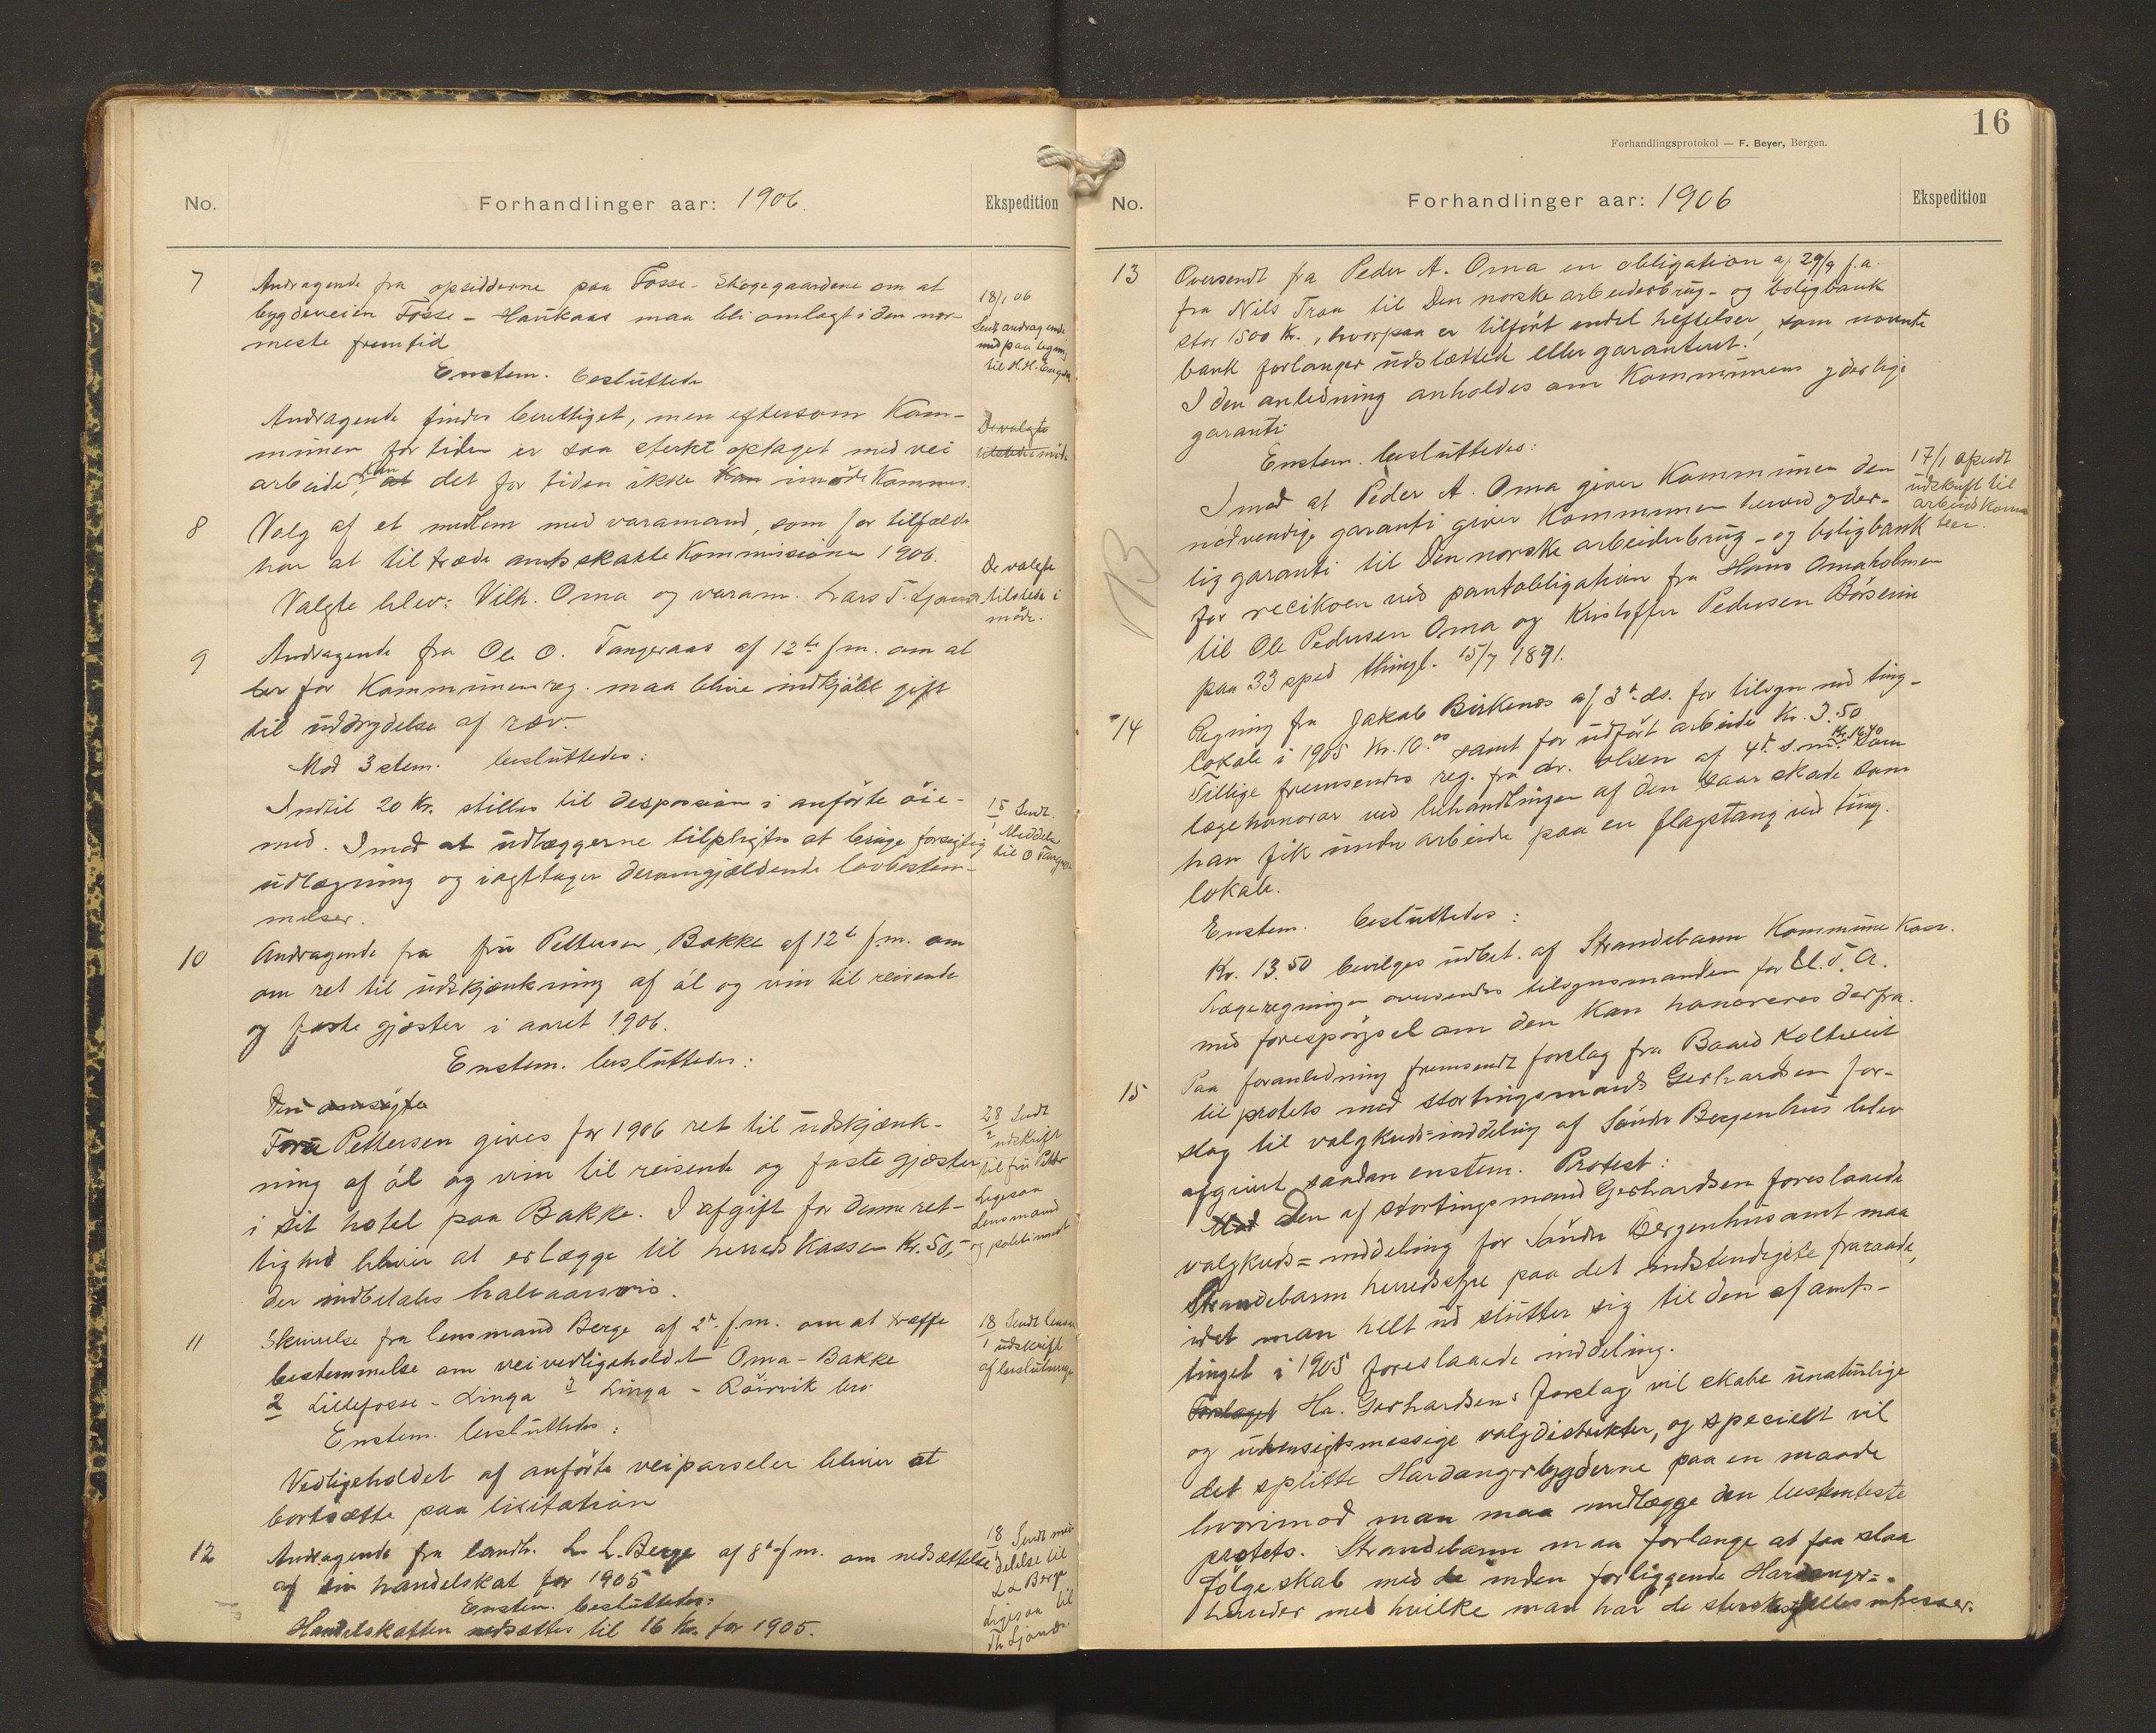 No.
Forhandlinger aar: 1906.
Ekspedition
7
Andragende fra opsidderne paa Fosse-Skogegaardene om at
bygdeveien Fosse - Haukaas maa bli omlagt i den nær-
meste fremtid
Enstem. besluttede
18/1 06
Sendt andragende
med paategning
til H. H.
Andragende findes berettiget, men eftersom Kom-
munen for tiden er saa sterkt optaget med vei
arbeide, kan det for tiden ikke imødekommes.
De valgte
tilstede i møde
8
Valg af et medlem med varamand, som for tilfælde
har at tiltræde amtsskattekommisionen 1906.
Valgte blev: Vilh. Oma og varam. Lars T. Ljones
De valgte
tilstede i
møde.
9
Andragende fra Ole O. Tangeraas af 12te f.m. om at
der for Kommunens reg. maa blive indkjøbt gift
til uddrydelse af ræv.
Mod 3 stem. besluttedes:
Indtil 20 Kr. stilles til desposision i anførte øie-
med. Imod at udlæggerne tilpligtes at bruge forsigtig
udlægning og iagttager deromgjældende lovbestem-
melser.
15/1 Sendt
Meddel
til O Tangeraas
10
Andragende fra fru Pettersen, Bakke af 12te f.m. om
om ret til udskjænkning af øl og vin til reisende
og faste gjæster i aaret 1906.
Enstem. besluttedes:
Den ansøgte
Fru Pettersen gives for 1906 ret til udskjænk-
ning af øl og vin til reisende og faste gjæster
i sit hotel paa Bakke. I afgift for denne ret-
tighed bliver at erlægge til herredskassen Kr. 50,-
der indbetales halvaarsvis.
28/2 Sendt
udskrift
til fru Petter
Ligesaa
Lensmand
og politimest
11
Skrivelse fra lensmand Berge af 2den f.m. om at træffe
bestemmelse om veivedligeholdet Oma - Bakke
2 Lillefosse - Linga 3 Linga - Röirvik bro
Enstem. besluttedes:
Vedligeholdet af anførte veiparseler bliver at
bortsætte paa lisitation
18/1 Sendt lensm
udskrift
af beslutninge
12
Andragende fra landh. L. L. Berge af 8de f.m. om nedsættelse
af sin handelskat for 1905
Enstem. besluttedes:
Handelskatten nedsættes til 16 Kr. for 1905.
18/1 Sendt med
delelse til
L L Berge
Ligesaa til
Th Ljones
16
Forhandlingsprotokol — F. Beyer, Bergen.
No.
Forhandlinger aar: 1906
Ekspedition
13
Oversendt fra Peder A. Oma en obligation af 29/9 f.a.
fra Nils Traa til Den norske arbeiderbrug- og boligbank
stor 1500 Kr., hvorpaa er tilført endel heftelser, som nævnte
bank forlanger udslættede eller garanteret!
I den anledning anholdes om Kommunens yderlige
garanti
Enstem. besluttedes:
Imod at Peder A. Oma giver Kommunen den
nødvendige garanti giver Kommunen herved yder-
lig garanti til Den norske arbeiderbrug- og boligbank
for recikoen ved pantobligation fra Hans Omaholmen
til Ole Pedersen Oma og Kristoffer Pedersen Børsein
paa 33 sped thingl. 15/7 1891.
17/1 afsendt
udskrift til
arbeidskom
teen.
13
14
Regning fra Jakob Birkenes af 3de ds. for tilsyn med ting-
lokale i 1905 Kr. 10.00 samt for udført arbeide Kr. 3.50
Tillige fremsendes reg. fra dr. Olsen af 4de s.m. Kr. 16.40 som
lægehonorar ved behandlingen af den saarskade som
han fik under arbeide paa en flagstang ved ting-
lokale.
Enstem. besluttedes:
Kr. 13.50 bevilges udbet. af Strandebarm Kommunekass.
Lægeregningen oversendes tilsynsmanden for U. T. A.
med forespørgsel om den kan honoreres derfra.
15
Paa foranledning fremsendt forslag fra Baard Koltveit
til protets mod stortingsmand Gerhardsen for-
slag til valgkreds-inddeling af Søndre Bergenhus blev
afgivet saadan enstem. Protest:
Mod Den af stortingsmand Gerhardsen foreslaaede
valgkreds=inddeling for Søndre Bergenhus amt maa
Strandebarm herredsstyre paa det indstendigste fraraade,
idet man helt ud slutter sig til den af amts-
tinget i 1905 foreslaaede inddeling.
Forslaget Hr. Gerhardsens forslag vil skabe unaturlige
og uhensigtsmæssige valgdistrikter, og specielt vil
det splitte Hardangerbygderne paa en maade
hvorimod man maa nedlægge den bestemteste
protets. Strandebarm maa forlange at faa slaa
følgeskab med de inden forliggende Hardanger=
herreder med hvilke man har de sterkeste fellesinteresser.